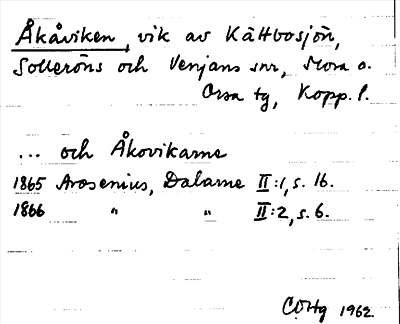 Åkåviken, vik av Kättbosjön,
Solleröns och Venjans snr, Mora o.
Orsa tg, Kopp. l.
... och Åkovikarne
1865 Arosenius, Dalarne II:1, s. 16.
1866 " " II:2, s. 6.
COHg 1962.